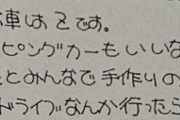 車はZです。
ピングカーもいいな
とみんなで手作りの
ドライブなんか行ったら